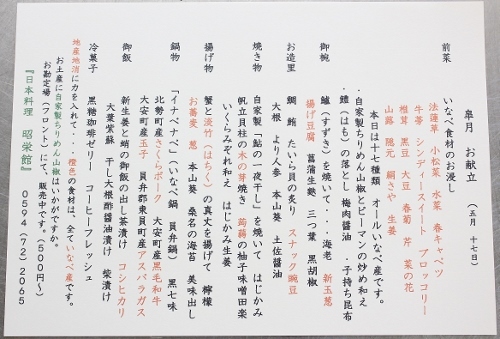 皐月　お献立　（五月　十七日）
前菜　いなべ食材のお浸し
法蓮草　小松菜　水菜　春キャベツ
牛蒡　シンディースイート　ブロッコリー
椎茸　黒豆　大豆　春菊　芹　菜の花
山蕗　隠元　絹さや　生姜
本日は十七種類　オールいなべ産です。
・自家製ちりめん山椒とピーマンの炒め和え
・鱧（はも）の落とし　梅肉醤油　・子持ち昆布
御椀　鱸（すずき）を焼いて・・・海老　新玉葱
揚げ豆腐　菖蒲生麩　三つ葉　黒胡椒
お造里　鯛　鮪　たいら貝の炙り　スナック豌豆
大根　より人参　本山葵　土佐醤油
焼き物　自家製「鮎の一夜干し」を焼いて　はじかみ
帆立貝柱の木の芽焼き　蒟蒻の柚子味噌田楽
いくらみぞれ和え　はじかみ生姜
揚げ物　蟹と淡竹（はちく）の真丈を揚げて　檸檬
お蕎麦　葱　本山葵　桑名の海苔　美味出し
鍋物　「イナベナベ」（いなべ鍋　員弁鍋）　黒七味
北勢町産さくらポーク　大安町産黒毛和牛
大安町産玉子　員弁郡東員町産アスパラガス
御飯　新生姜と蛸の御飯の出し茶漬け　コシヒカリ
大葉紫蘇　干し大根酢醤油漬け　柴漬け
冷菓子　黒糖珈琲ゼリー　コーヒーフレッシュ
地産地消に力を入れて・・・橙色の食材は、全ていなべ産です。
お土産に自家製ちりめん山椒はいかがですか。
お勘定場（フロント）にて、販売中です。（５００円〜）
『日本料理　昭栄館』　０５９４（７２）２０６５